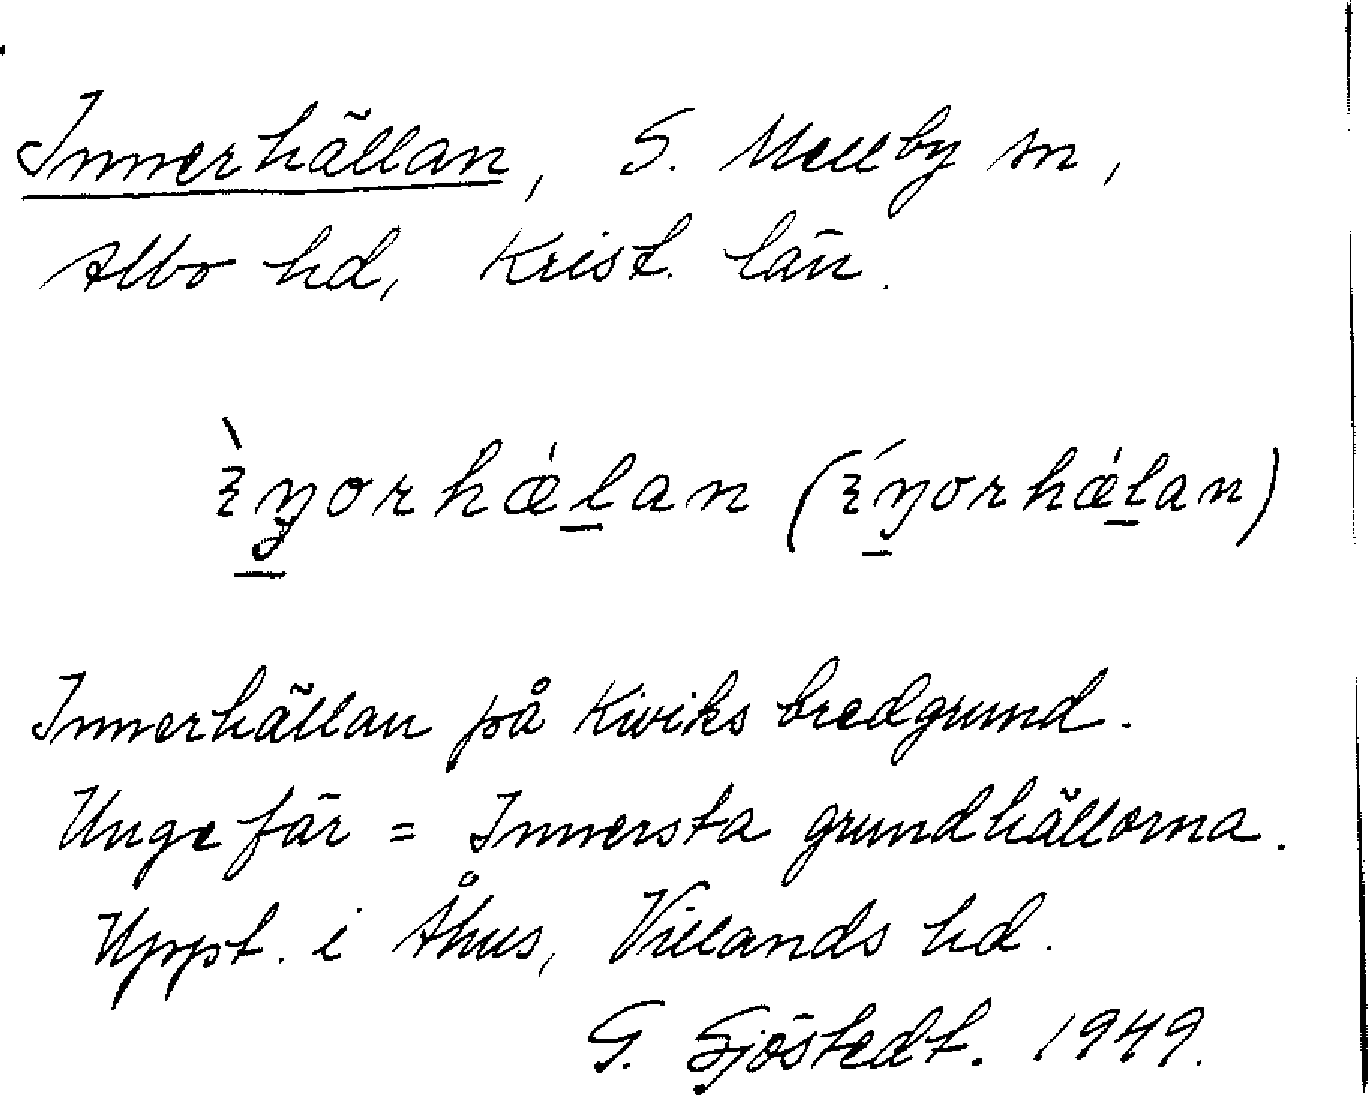 Innerhällan, S. Mellby sn,
Albo hd, Krist. län.
Innerhällan på Kiviks bredgrund.
Ungefär = Innersta grundhällorna.
Uppt. i Åhus, Villands hd.
G. Sjöstedt. 1949.